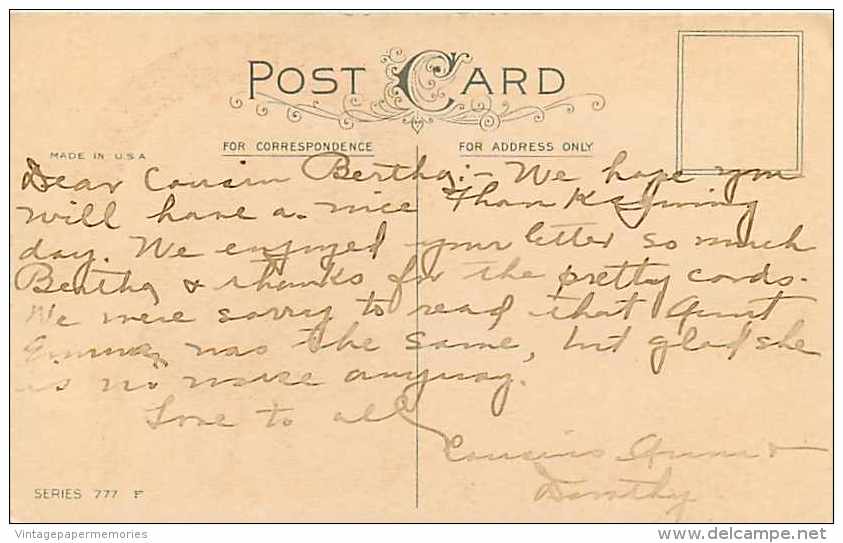 POST CARD
FOR CORRESPONDENCE
FOR ADDRESS ONLY
MADE IN U.S.A
Dear Cousin Bertha:- We hope you
will have a nice Thanksgiving
day. We enjoyed your letter so much
Bertha & thanks for the pretty cards.
We were sorry to read that Aunt
Emma was the same, but glad she
is no worse anyway.
Love to all
Cousins &
Dorothy
SERIES 777 F
Vintagepapermemories
delcampe.net